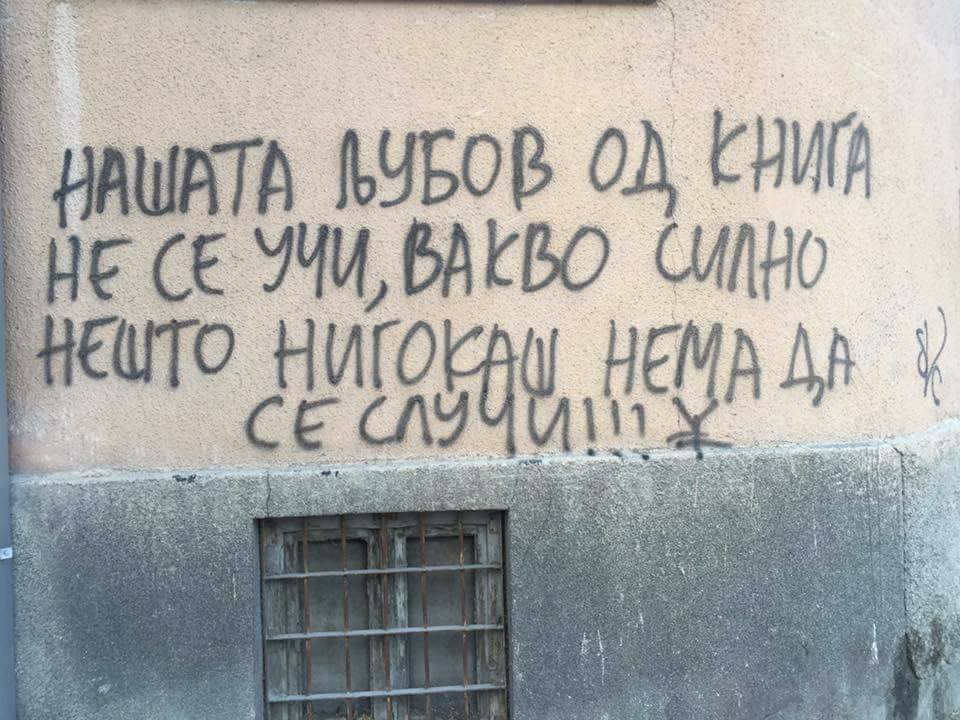 НАШАТА ЉУБОВ ОД КНИГА
НЕ СЕ УЧИ, ВАКВО СИЛНО
НЕШТО НИГОКАШ НЕМА ДА
СЕ СЛУЧИ!!!